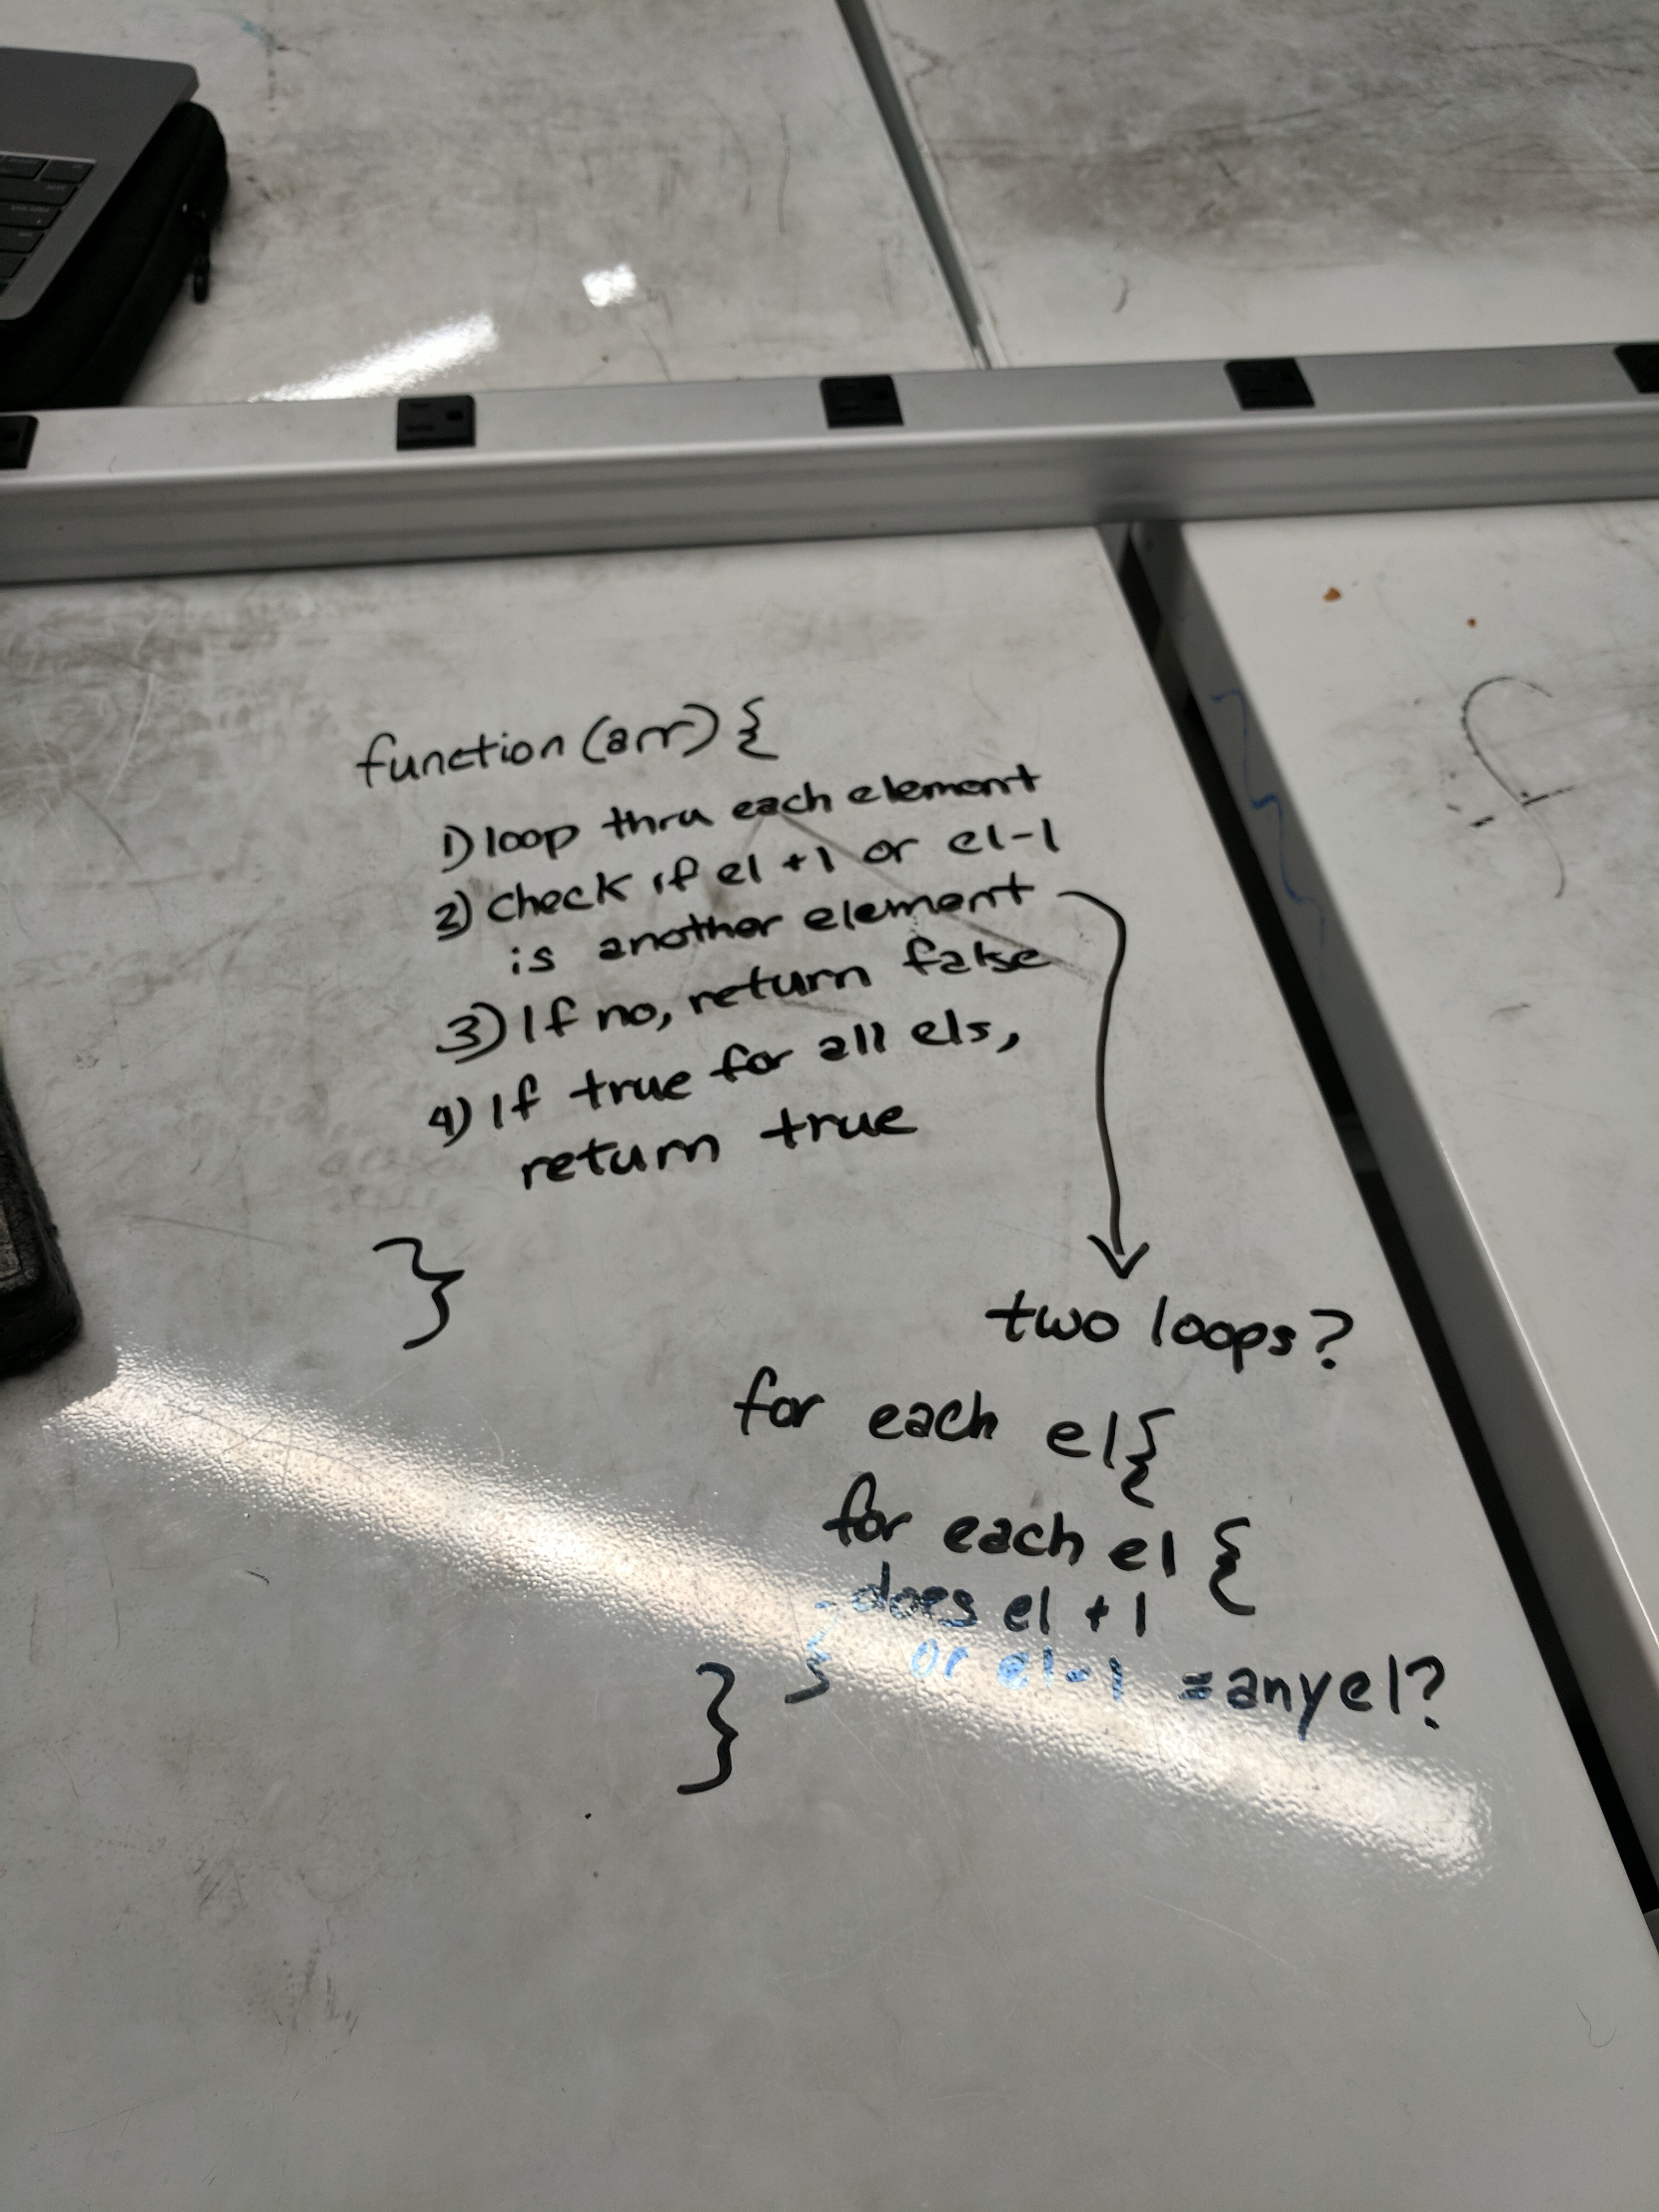 function(arr){
1) loop thru each element
2) check if el +1 or el-1
is another element
3) If no, return false
4) If true for all els,
return true
}
two loops?
for each el{
for each el {
-does el +1
} or el-1 =anyel?
}